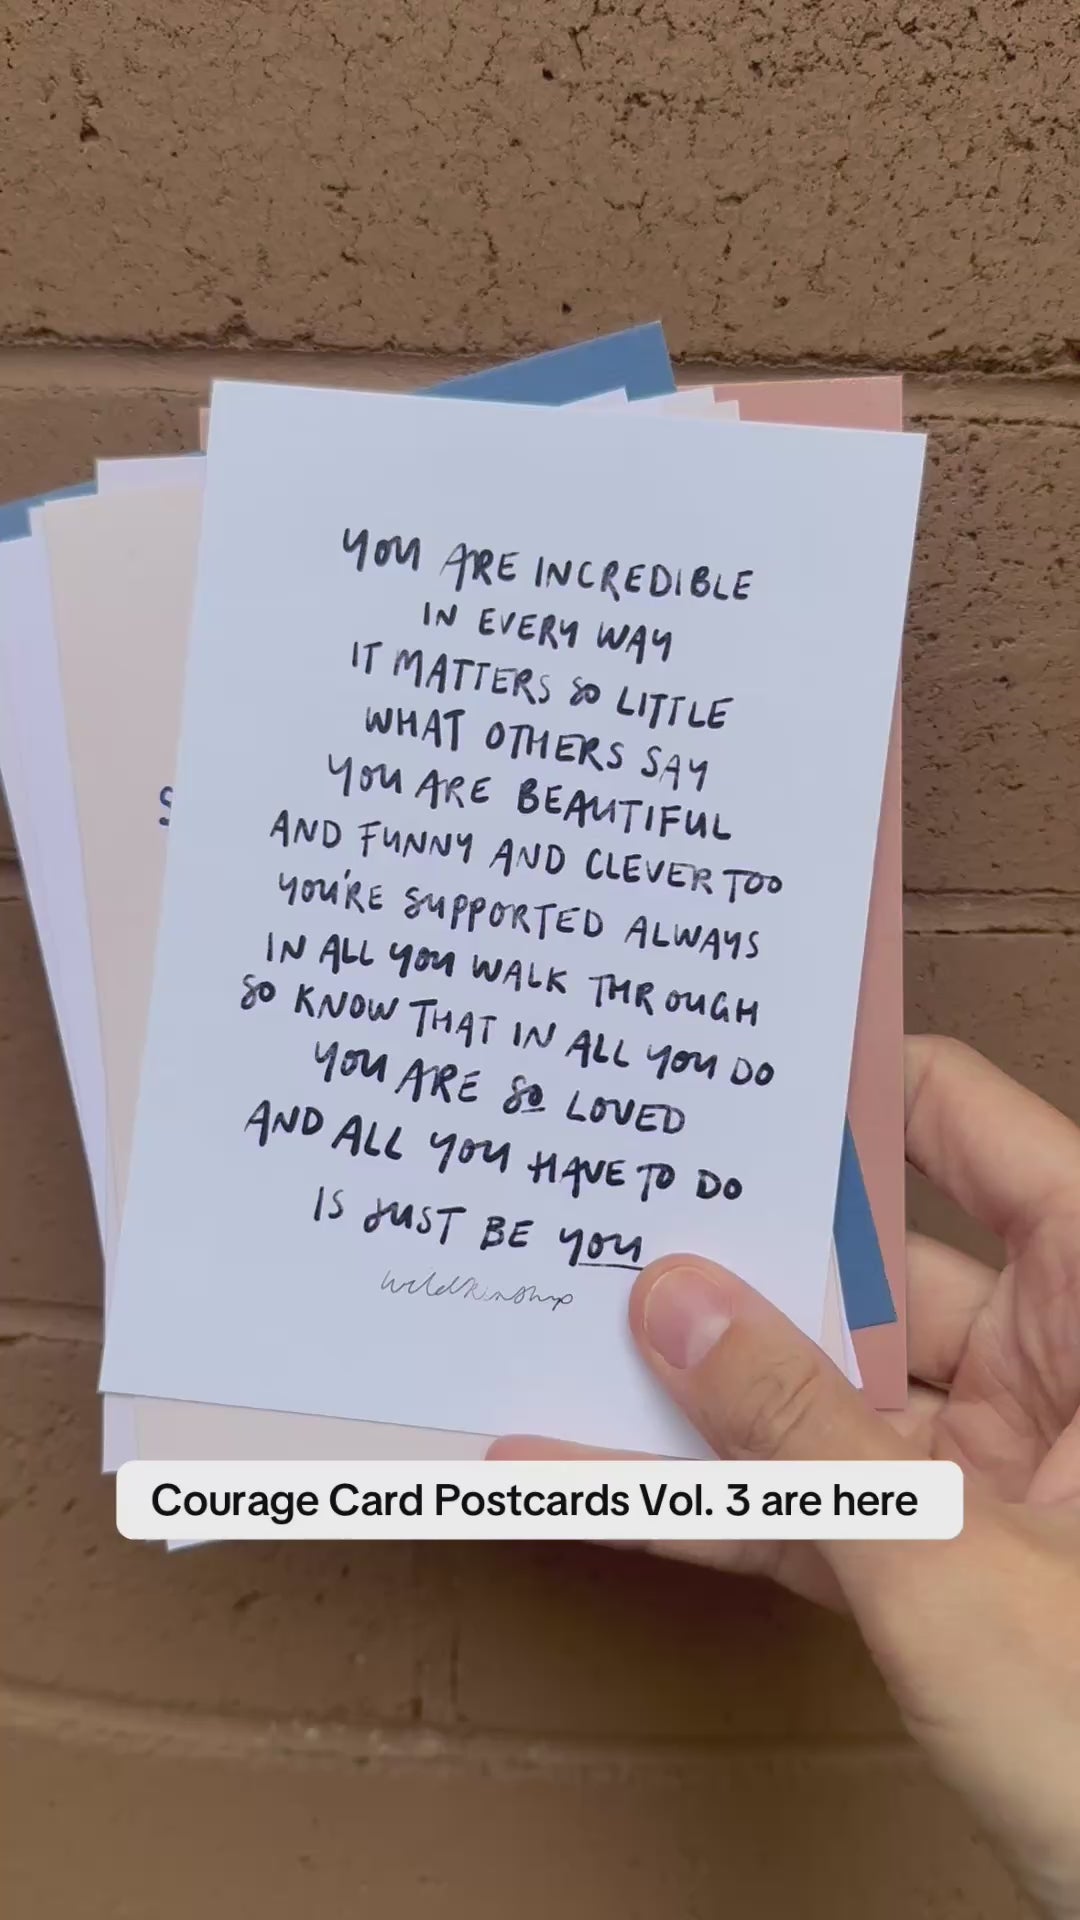 YOU ARE INCREDIBLE
IN EVERY WAY
IT MATTERS SO LITTLE
WHAT OTHERS SAY
YOU ARE BEAUTIFUL
AND FUNNY AND CLEVER TOO
YOU'RE SUPPORTED ALWAYS
IN ALL YOU WALK THROUGH
SO KNOW THAT IN ALL YOU DO
YOU ARE SO LOVED
AND ALL YOU HAVE TO DO
IS JUST BE YOU
wildkinship
Courage Card Postcards Vol. 3 are here